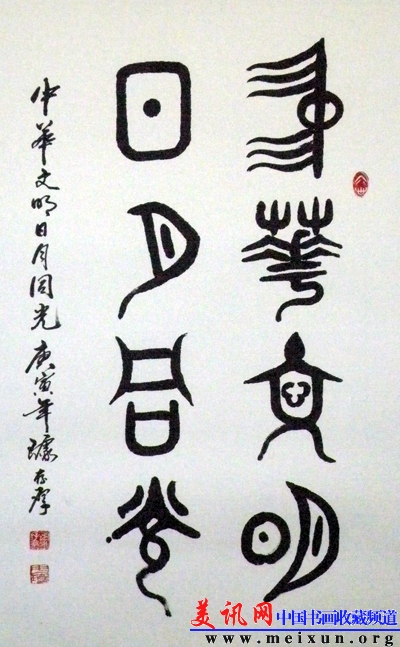 中華文明
日月同光
中華文明日月同光 庚寅年
美讯网 中国书画收藏频道
www.meixun.org